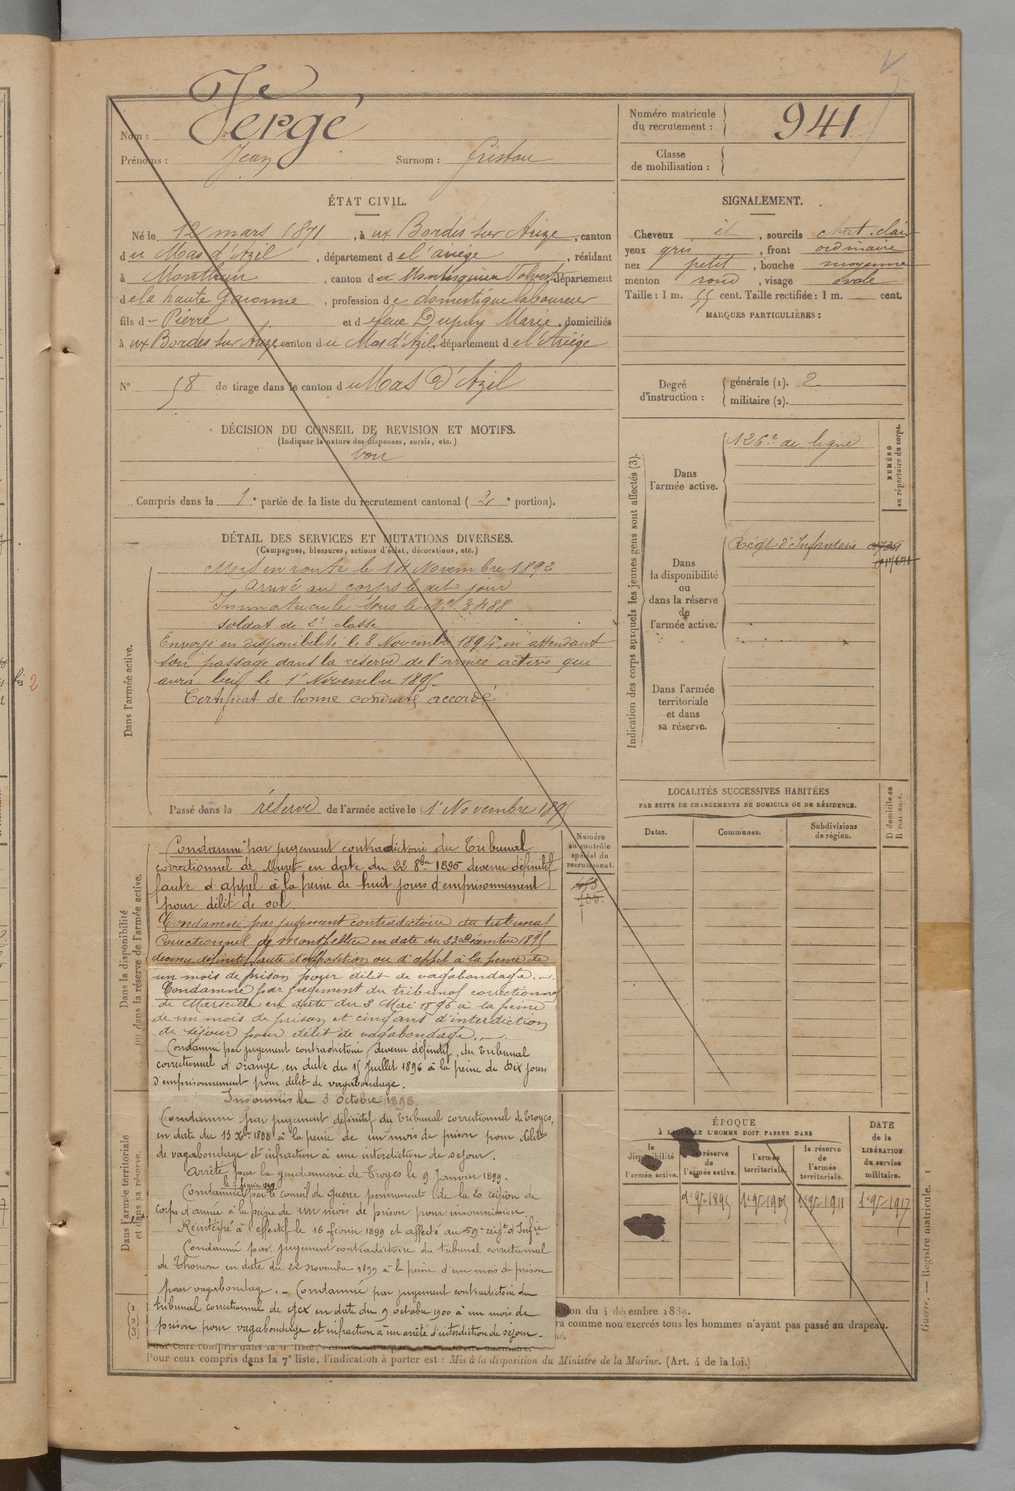 Nom : Fergé
Prénoms : Jean Surnom :
Numéro matricule
du recrutement : 941
Classe
de mobilisation :
ÉTAT CIVIL.
Né le 12 mars 1871, à ux Bordes sur Arize, canton
du Mas d'Azil, département de l'Ariège, résidant
à , canton de Volvestre, département
de la haute Garonne, profession de domestique laboureur
fils d- Pierre et d- feue Dupuy Marie, domiciliés
à ux Bordes sur Arize canton du Mas d'Azil, département de l'Ariège
N° 58 de tirage dans le canton du Mas d'Azil
DÉCISION DU CONSEIL DE REVISION ET MOTIFS.
(Indiquer la nature des dispenses, sursis, etc.)
bon
Compris dans la 1e partie de la liste du recrutement cantonal (2e portion).
SIGNALEMENT.
Cheveux , sourcils chat. clair
yeux gris, front ordinaire
nez petit, bouche moyenne
menton rond, visage ovale
Taille : 1 m. 55 cent. Taille rectifiée : 1 m. cent.
MARQUES PARTICULIÈRES :
Degré
d'instruction :
générale (1). 2
militaire (2).
DÉTAIL DES SERVICES ET MUTATIONS DIVERSES.
(Campagnes, blessures, actions d'éclat, décorations, etc.)
Dans l'armée active.
Mis en route le 14 Novembre 1892
Arrivé au corps le dit jour
Immatriculé sous le N° 3488
Soldat de 2e classe
Envoyé en disponibilité le 8 Novembre 1894, en attendant
son passage dans la réserve de l'armée active qui
aura lieu le 1er Novembre 1895
Certificat de bonne conduite accordé
Passé dans la réserve de l'armée active le 1er Novembre 1895
Indication des corps auxquels les jeunes gens sont affectés (3).
NUMÉRO
au répertoire du corps.
Dans
l'armée active.
126e de ligne
Dans
la disponibilité
ou
dans la réserve
de
l'armée active.
Régt d'Infanterie
Dans l'armée
territoriale
et dans
sa réserve.
Dans la disponibilité
ou dans la réserve de l'armée active.
Numéro
au contrôle
spécial du
recrutement.
Condamné par jugement contradictoire du Tribunal
correctionnel de Muret, en date du 22 8bre 1895 devenu définitif
faute d'appel à la peine de huit jours d'emprisonnement
pour délit de vol.
Condamné par jugement contradictoire du tribunal
Correctionnel de Montpellier en date du 23 Décembre 1895
devenu définitif faute d'opposition ou d'appel à la peine de
un mois de prison pour délit de vagabondage.
Condamné par jugement du tribunal correctionnel
de Marseille en date du 8 Mai 1896 à la peine
de un mois de prison et cinq ans d'interdiction
de séjour pour délit de vagabondage.
Condamné par jugement contradictoire, devenu définitif, du Tribunal
correctionnel d'Orange, en date du 15 Juillet 1896 à la peine de Dix jours
d'emprisonnement pour délit de vagabondage.
Insoumis le 3 Octobre 1898.
Dans l'armée territoriale
et dans sa réserve.
Condamné par jugement définitif du Tribunal correctionnel de Troyes,
en date du 13 Xbre 1898 à la peine de un mois de prison pour délit
de vagabondage et infraction à une interdiction de séjour.
Arrêté par la gendarmerie de Troyes le 9 Janvier 1899.
Condamné par le Conseil de guerre permanent de la 20 région de
Corps d'armée à la peine de un mois de prison pour insoumission
Réintégré à l'effectif le 16 février 1899 et affecté au 59e régt d'Infie
Condamné par jugement contradictoire du tribunal correctionnel
de Thonon en date du 22 novembre 1899 à la peine d'un mois de prison
pour vagabondage. - Condamné par jugement contradictoire du
tribunal correctionnel de Gex en date du 9 octobre 1900 à un mois de
prison pour vagabondage et infraction à un arrêté d'interdiction de séjour.
LOCALITÉS SUCCESSIVES HABITÉES
PAR SUITE DE CHANGEMENTS DE DOMICILE OU DE RÉSIDENCE.
Dates. Communes. Subdivisions
de région.
ÉPOQUE
À LAQUELLE L'HOMME DOIT PASSER DANS
la disponibilité de l'armée active.
la réserve de l'armée active.
l'armée territoriale.
la réserve de l'armée territoriale.
DATE
de la
LIBÉRATION
du service
militaire.
1er 9bre 1895 1er 9bre 1905 1er 9bre 1911 1er 9bre 1917
du 4 décembre 1889.
comme non exercés tous les hommes n'ayant pas passé au drapeau.
Pour ceux compris dans la 7e liste, l'indication à porter est : Mis à la disposition du Ministre de la Marine. (Art. 4 de la loi.)
Guerre. — Registre matricule. 1